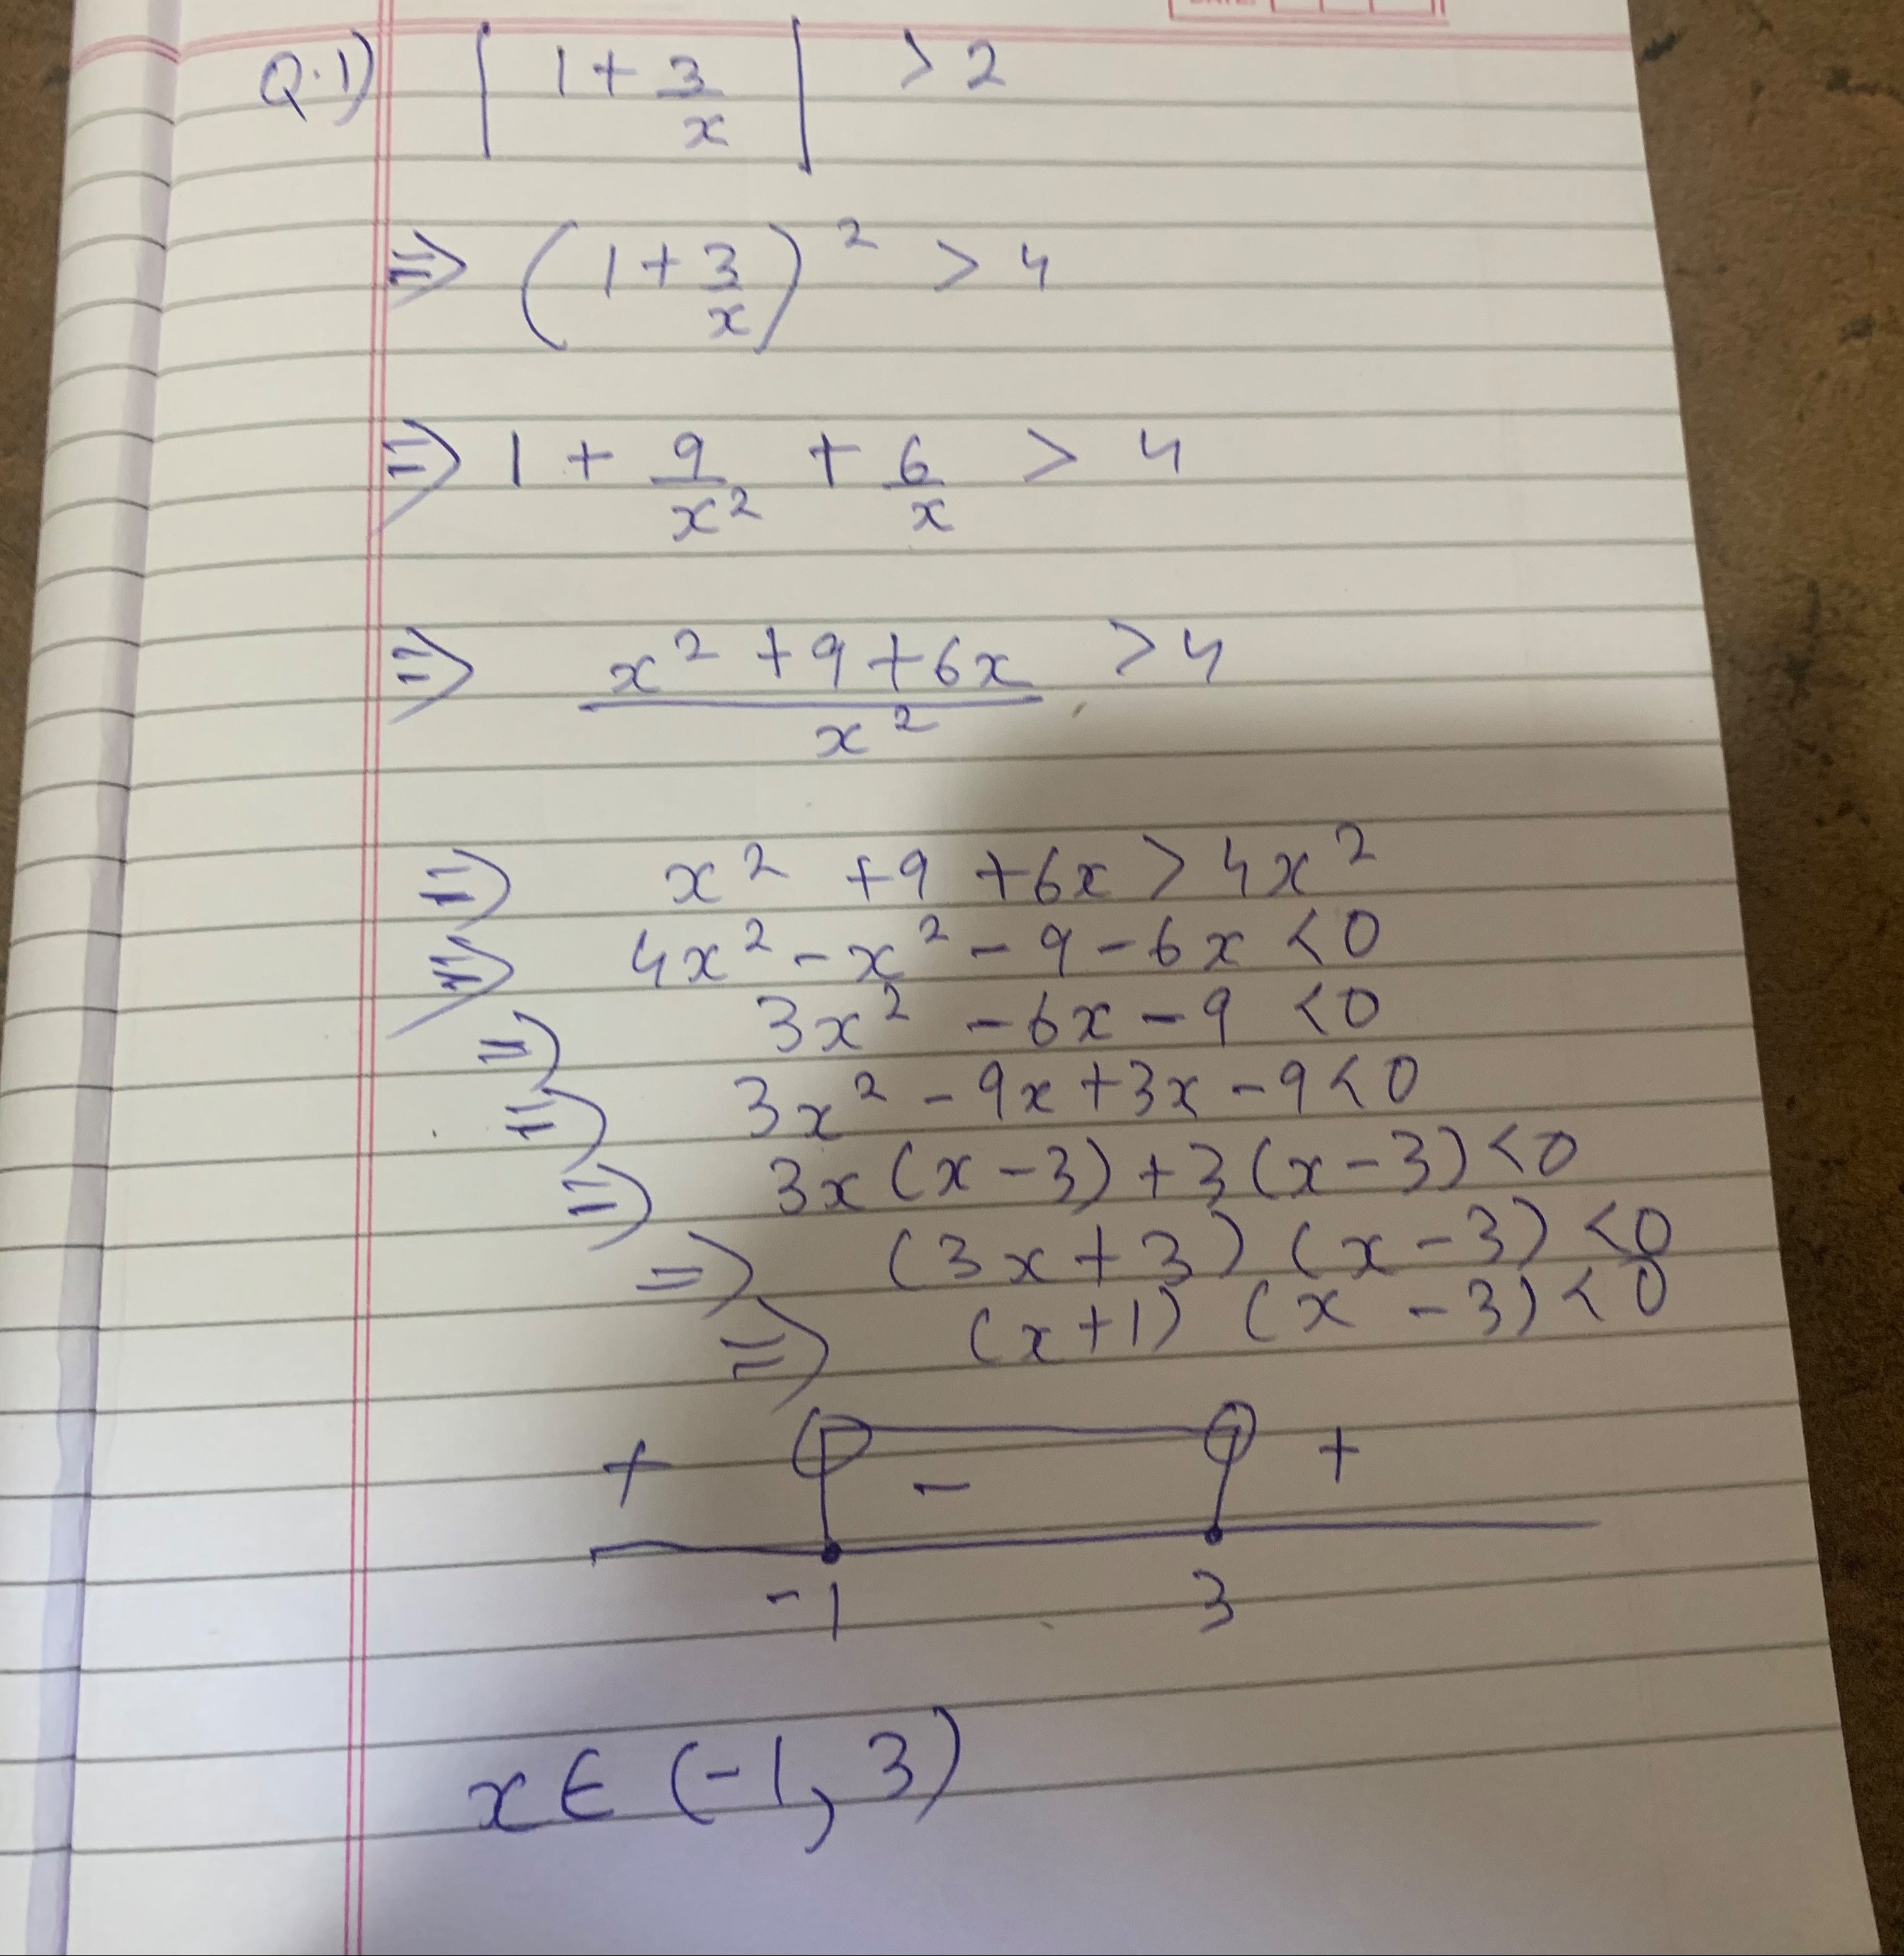 Q.1) | 1 + 3/x | > 2
⇒ (1 + 3/x)² > 4
⇒ 1 + 9/x² + 6/x > 4
⇒ (x² + 9 + 6x)/x² > 4
⇒ x² + 9 + 6x > 4x²
⇒ 4x² - x² - 9 - 6x < 0
⇒ 3x² - 6x - 9 < 0
⇒ 3x² - 9x + 3x - 9 < 0
⇒ 3x(x - 3) + 3(x - 3) < 0
⇒ (3x + 3) (x - 3) < 0
⇒ (x + 1) (x - 3) < 0
+ - +
-1 3
x ∈ (-1, 3)